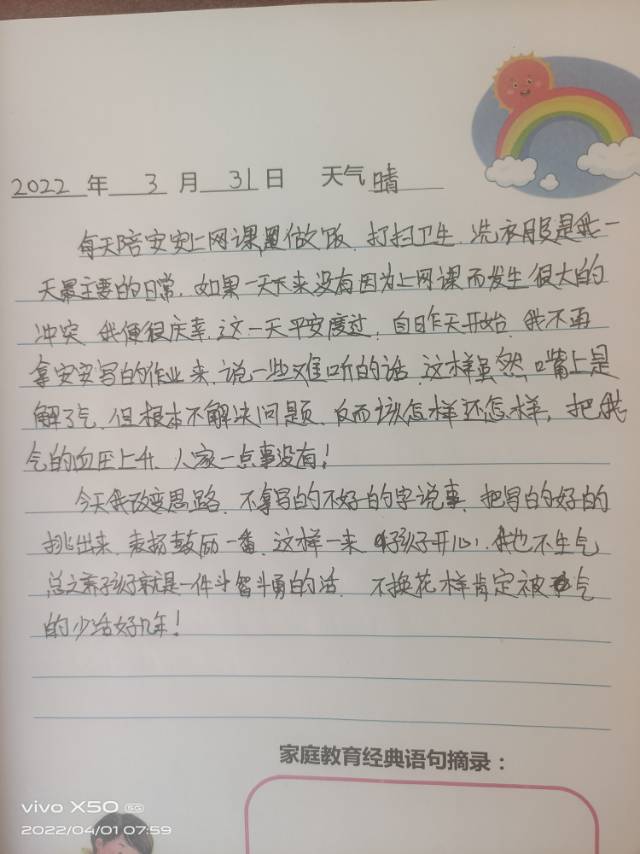 2022 年 3 月 31 日 天气 晴
每天陪安安上网课,做饭、打扫卫生、洗衣服是我一
天最主要的日常,如果一天下来没有因为上网课而发生很大的
冲突,我便很庆幸,这一天平安度过,自昨天开始,我不再
拿安安写的作业来,说一些难听的话,这样虽然嘴上是
解了气,但根本不解决问题,反而该怎样还怎样,把我
气的血压上升,人家一点事没有!
今天我改变思路,不拿写的不好的字说事,把写的好的
挑出来,表扬鼓励一番,这样一来,孩子开心,我也不生气
总之养孩子就是一件斗智斗勇的活,不换花样肯定被气
的少活好几年!
家庭教育经典语句摘录:
vivo X50 5G
2022/04/01 07:59